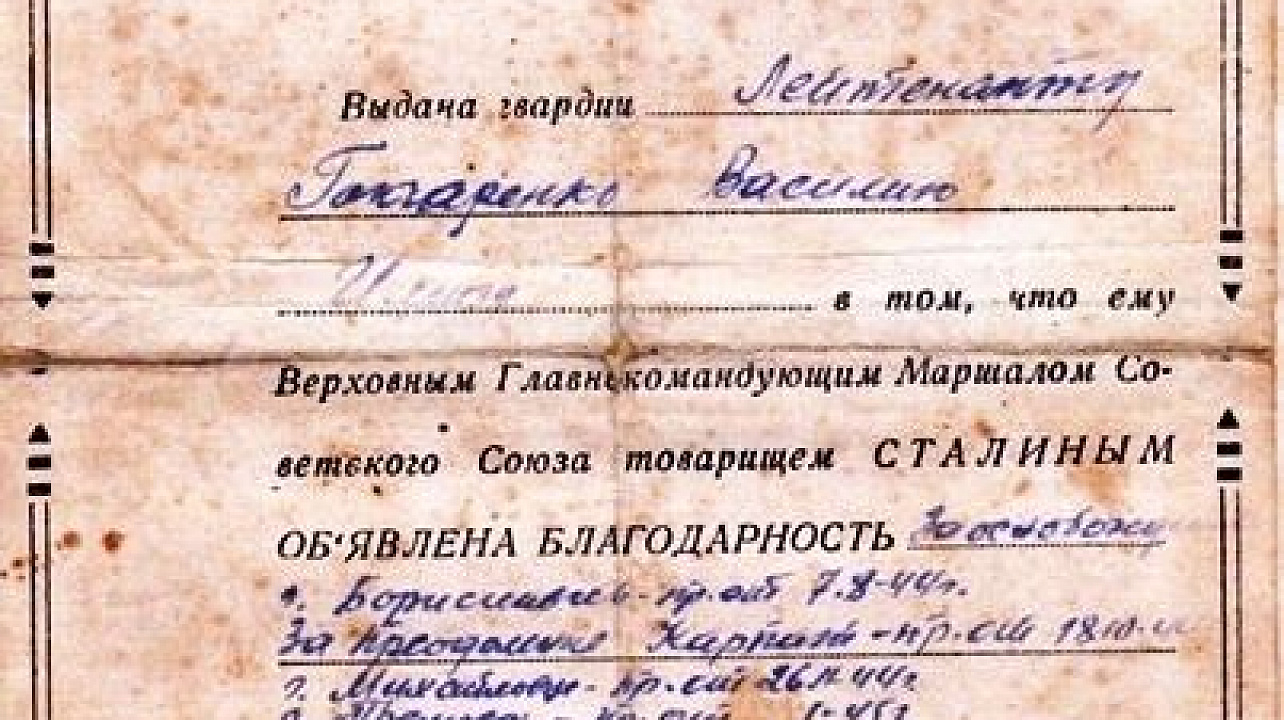 Выдача гвардии Лейтенанту
Гончаренко Василию
в том, что ему
Верховным Главнокомандующим Маршалом Со-
ветского Союза товарищем СТАЛИНЫМ
ОБ'ЯВЛЕНА БЛАГОДАРНОСТЬ За освобожд
г. Бориславль - пр. от 7.8-44г.
За преодоление Карпат - пр. от 18.10.
г. Михайловце - пр. от 26.11.44г.